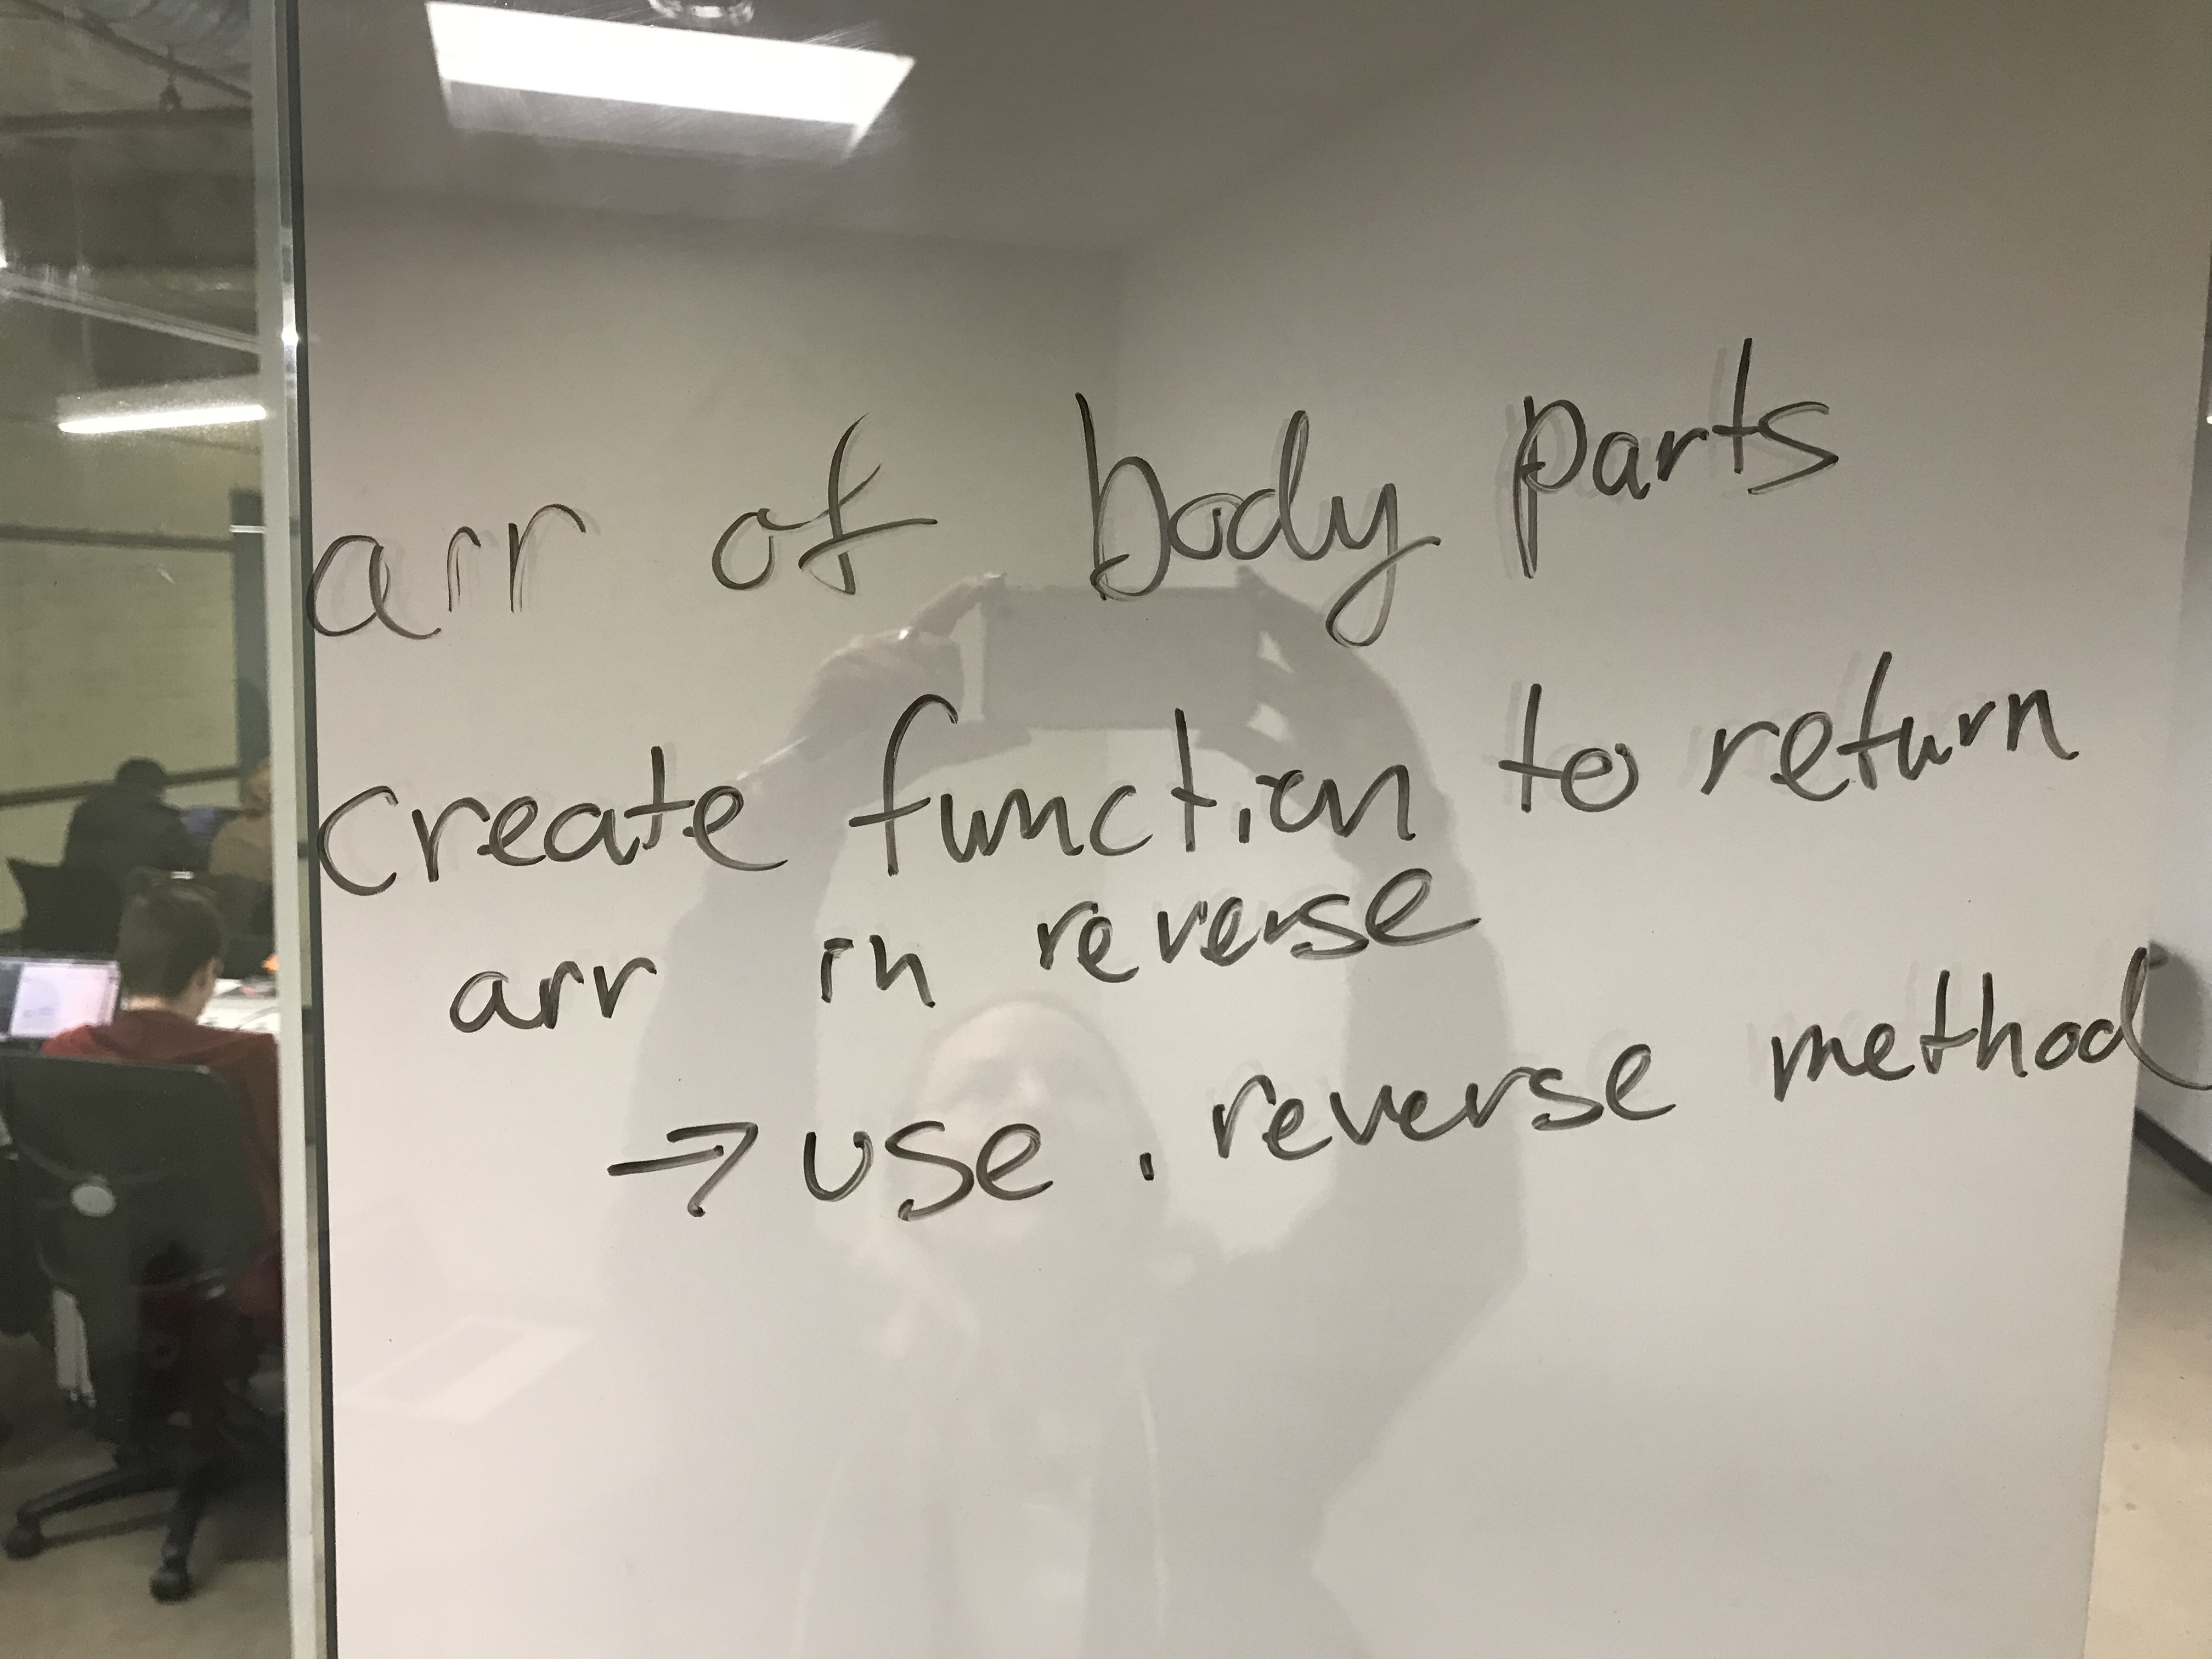 arr of body parts
create function to return
arr in reverse
→ use .reverse method